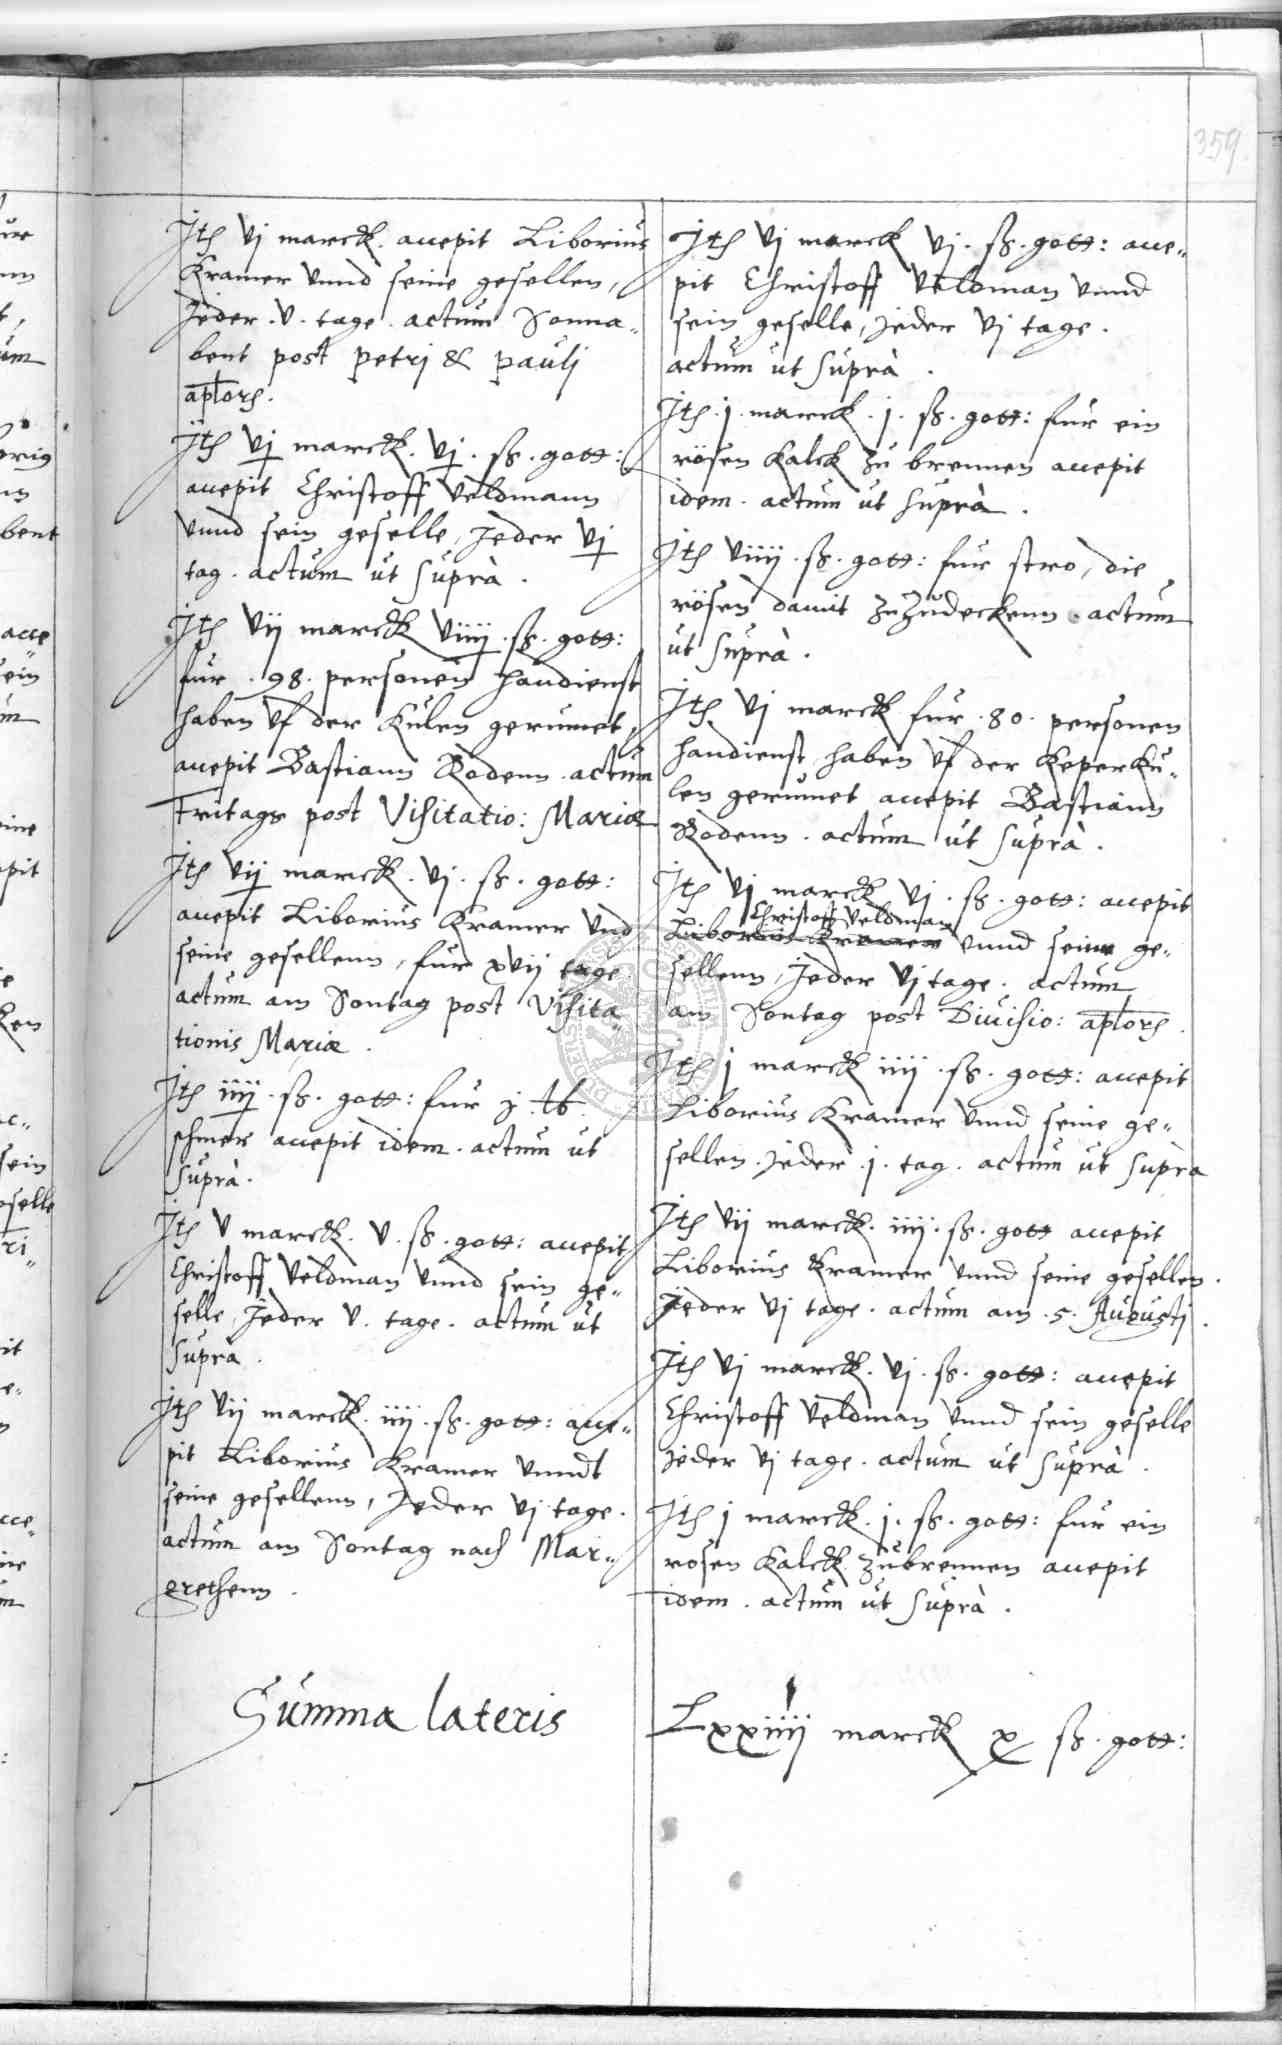 359.
Ith vj marck. accepit Liborius
Kramer vnnd seine gesellen,
Jeder. v. tage. actum Sonna„
bent post petri & pauli
aplors.
Ith vj marck. vj. ß. gott:
accepit Christoff Veldmann
vnnd sein geselle, Jeder vj
tag. actum ut suprà.
Ith vij marck viiij. ß. gott:
fur. 98. personen handienst
haben vf der Kulen gerumet,
accepit Bastiann Rodenn. actum
fritags post Visitatio: Mariæ
Ith vij marck. vj. ß. gott:
accepit Liborius Kramer vnd
seine gesellenn, fur xvij tage
actum am Sontag post Visita„
tionis Mariæ.
Ith iiij. ß. gott: fur j. lb.
schmer accepit idem. actum ut
suprà.
Ith v marck. v. ß. gott: accepit
Christoff Veldman vnnd sein ge„
selle, Jeder v. tage. actum ut
suprà.
Ith vij marck. iiij. ß. gott: acce„
pit Liborius Kramer vnndt
seine gesellenn, Jeder vj tage.
actum am Sontag nach Mar„
grethenn.
Summa lateris
Ith vj marck vj. ß. gott: acce„
pit Christoff Veldman vnnd
sein geselle, Jeder vj tage.
actum ut suprà.
Ith. j. marck. j. ß. gott: fur ein
rösen Kalck zu brennen accepit
idem. actum ut suprà.
Ith viiij. ß. gott: fur stro, die
rösen damit zuzudeckenn. actum
ut suprà.
Ith vj marck fur. 80. personen
handienst haben vf der Keperku„
len gerumet accepit Bastiann
Rodenn. actum ut suprà.
Ith vj marck vj. ß. gott: accepit
Christoff Veldman
Liborius Kramer vnnd seine ge„
sellenn, Jeder vj tage. actum
am Sontag post Diuisio: aplors.
Ith j marck iiij. ß. gott: accepit
Liborius Kramer vnnd seine ge„
sellen. Jeder. j. tag. actum ut suprà
Ith vij marck. iiij. ß. gott accepit
Liborius Kramer vnnd seine gesellen.
Jeder vj tage. actum am. 5. Augusti.
Ith vj marck. vj. ß. gott: accepit
Christoff Veldman vnnd sein geselle
Jeder vj tage. actum ut suprà.
Ith j marck. j. ß. gott: fur ein
rosen Kalck zubrennen accepit
idem. actum ut suprà.
Lxxiiij marck x ß. gott: